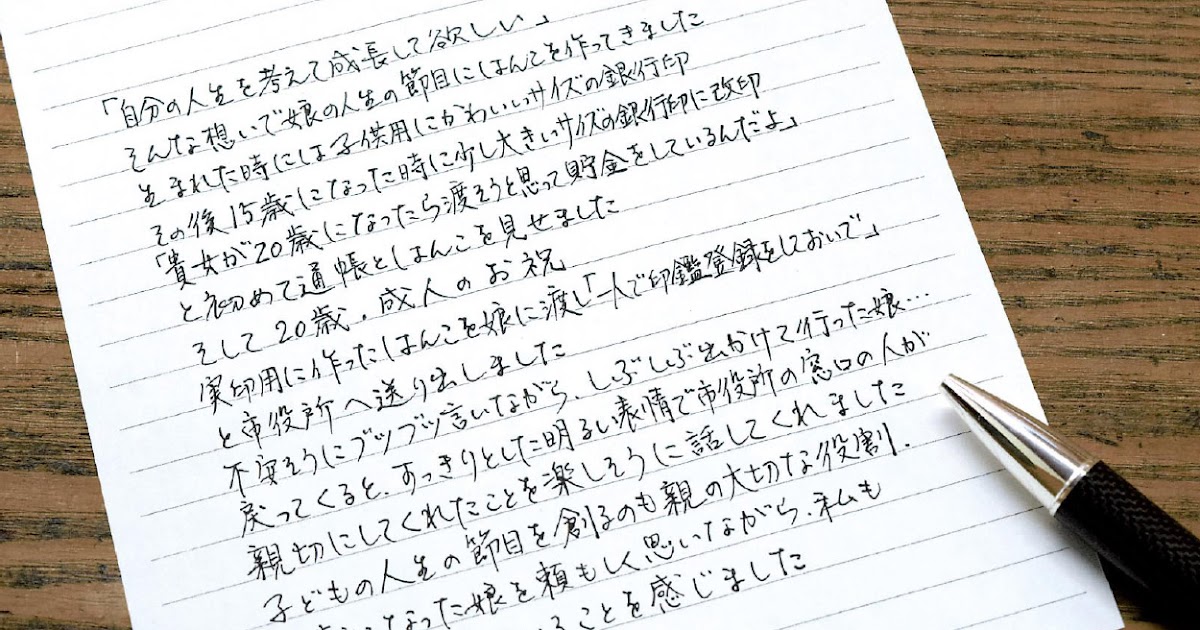 「自分の人生を考えて成長して欲しい」
そんな想いで娘の人生の節目にはんこを作ってきました
生まれた時には子供用にかわいいサイズの銀行印
その後15歳になった時に少し大きいサイズの銀行印に改印
「貴女が20歳になったら渡そうと思って貯金をしているんだよ」
と初めて通帳とはんこを見せました
そして20歳、成人のお祝
実印用に作ったはんこを娘に渡し「一人で印鑑登録をしておいで」
と市役所へ送り出しました
不安そうにブツブツ言いながら、しぶしぶ出かけて行った娘…
戻ってくると、すっきりとした明るい表情で市役所の窓口の人が
親切にしてくれたことを楽しそうに話してくれました
子どもの人生の節目を創るのも親の大切な役割、
なった娘を頼もしく思いながら、私も
ることを感じました